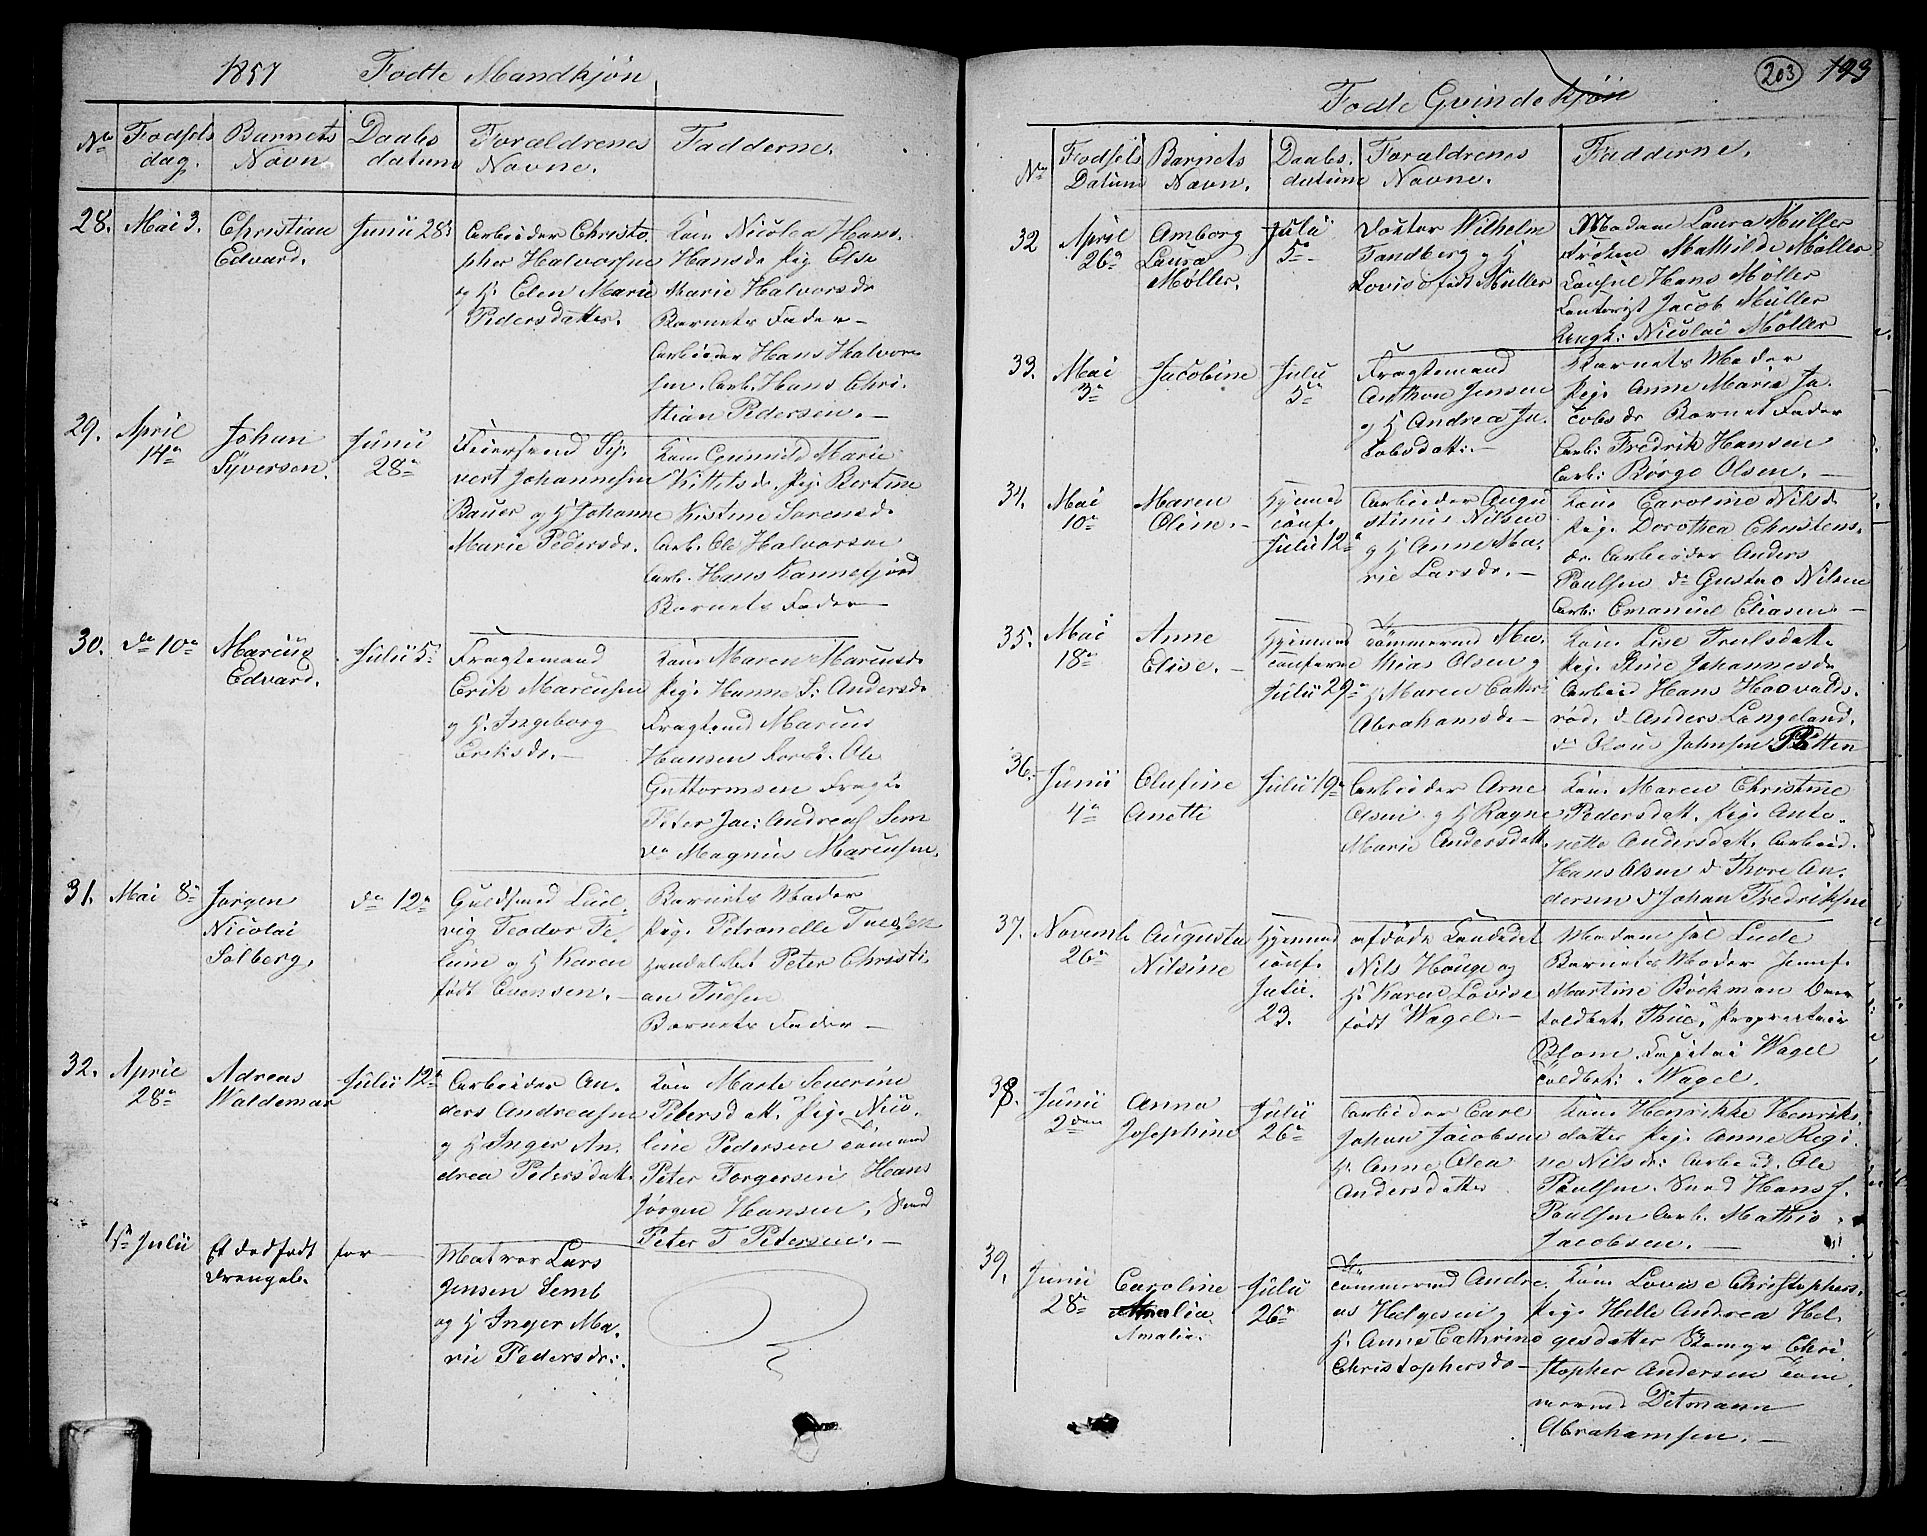 1857 Fødte Mandkjøn
No
Fødsels
dag.
Barnets
Navn
Daabs
datum
Forældrenes
Navne.
Fadderne.
28. Mai 3. Christian
Edvard.
Junii 28
Arbeider Christo
pher Halvorsen
og H. Elen Marie
Pedersdatter.
Kone Nicolea Hans
Hansdr Pige Else
Marie Halvorsdr
Barnets Fader –
Arbeider Hans Halvor
sen. Arb. Hans Chri
stian Pedersen. –
29. April
14de
Johan
Syversen.
Junii
28de
Sy
vert Johannesen
Bauer og H Johanne
Marie Pedersdr.
Kone Gunnild Marie
Kittelsdr. Pige Bertine
Kistine Sørensdr
Arb. Ole Halvorsen
Arb. Hans Kannefjord
Barnets Fader –
30. do 10de Marius
Edvard.
Julii 5
Fragtemand
Erik Marcusen
og H. Ingeborg
Eriksdr. –
Kone Maren Marcusdr
Pige Hanne S: Andersdr
Fragtemd Marius
Hansen Ole
Guttormsen Fragtem
Peter Jac: Andreas Sem
do Magnus Marcusen.
31. Mai 8de Jørgen
Nicolai
Solberg.
do 12de
Guldsmed Lud
vig Teodor Fe
lum og H Karen
født Evensen. –
Barnets Moder
Pige Petronelle Tuefsen
Peter Christi
an Tuefsen
Barnets Fader –
32. April
28de
Adreas
Waldemar
Julii 12de
Arbeider An
ders Andreasen
og H Inger An
drea Petersdatt.
Kone Marte Severine
Petersdatt. Pige Nico
line Pedersen Tømmermd
Peter Torgersen Hans
Jørgen Hansen, Smed
Peter T Petersen. –
1ste Julii Et dødfødt
Drengeb.
Matros Lars
Jensen Semb
og H Inger Ma
rie Pedersdr.
203 193
Fødte Qvindekjøn
No
Fødsels
Datum
Barnets
Navn.
Daabs.
datum
Forældrenes
Navne.
Fadderne.
32 April
26de
Amborg
Laura
Møller.
Julii
5de
Doktor Wilhelm
Tandberg og H
Lovise født Müller
Madam Laura Müller
Frøken Mathilde Møller
Consul Hans Møller
Contorist Jacob Müller
Nicolai Möller
33. Mai
3de
Jacobine
Julii
5de
Fragtemand
Anthon Jensen
og H Andrea Ja
cobsdatt: –
Barnets Moder
Pige Anne Marie Ja
cobsdr Barnet Fader
Arb: Fredrik Hansen
Arb: Børge Olsen. –
34. Mai
10de
Maren
Oline. –
Hjemmed
conf.
Julii 12de
Arbeider Augu
stinus Nilsen
og H Anne Ma
rie Larsdr. –
Kone Caroline Nilsdr
Pige Dorothea Christens
dr. Arbeider Anders
Paulsen do Gustav Nilsen
Arb: Emanuel Eliasen –
35. Mai
18de
Anne
Elise. –
Hjemmed
Julii 29de
Tømmermd Ma
thias Olsen og
H Maren Cathr
Abrahamsdr –
Kone Lise Trulsdatt.
Pige Stine Johannesdr
Arbeid Hans Haavalds
rød, do Anders Langeland,
do Olaus Johnsen Røtten
36. – Junii
4de
Olufine
Anette
Julii 19de
Arbeider Arne
Olsen og H Ragne
Marie Andersdatt.
Kone Maren Christine
Pedersdatt. Pige Anto
nette Andersdatt. Arbeid.
Hans Olsen do Thore An
dersen do Johan Fredriksen
37. Novemb
26de
Augusta
Nilsine
Hjemmed
conf.
Julii.
23.
afdøde Candidat
Nils Houge og
H. Karen Lovise
født Wagel. –
Madam Lude
Barnets Moder Jomf.
Martine Böckman Over
toldbet. Thue, Proprietair
Blom. Capitai Wagel
Toldbet: Wagel.
38. Junii
2den
Anna
Josephine
Julii
26de
Arbeider Carl
Johan Jacobsen
H. Anne Olea
Andersdatter
Kone Henrikke Henriks
datter Pige Anne Regi
ne Nilsdr: Arbeid. Ole
Paulsen. Smed Hans J.
Paulsen Arb. Mathis
Jacobsen. –
39. Junii
28de
Caroline
Amalia.
Julii
26de
Tømmermd Andre
as Helgesen og
H. Anne Cathrine
Christophersdr –
Kone Lovise Christophers
Pige Helle Andrea Hel
gesdatter Chri
stopher Andersen Tøm
mermd Ditmann
Abrahamsen. –